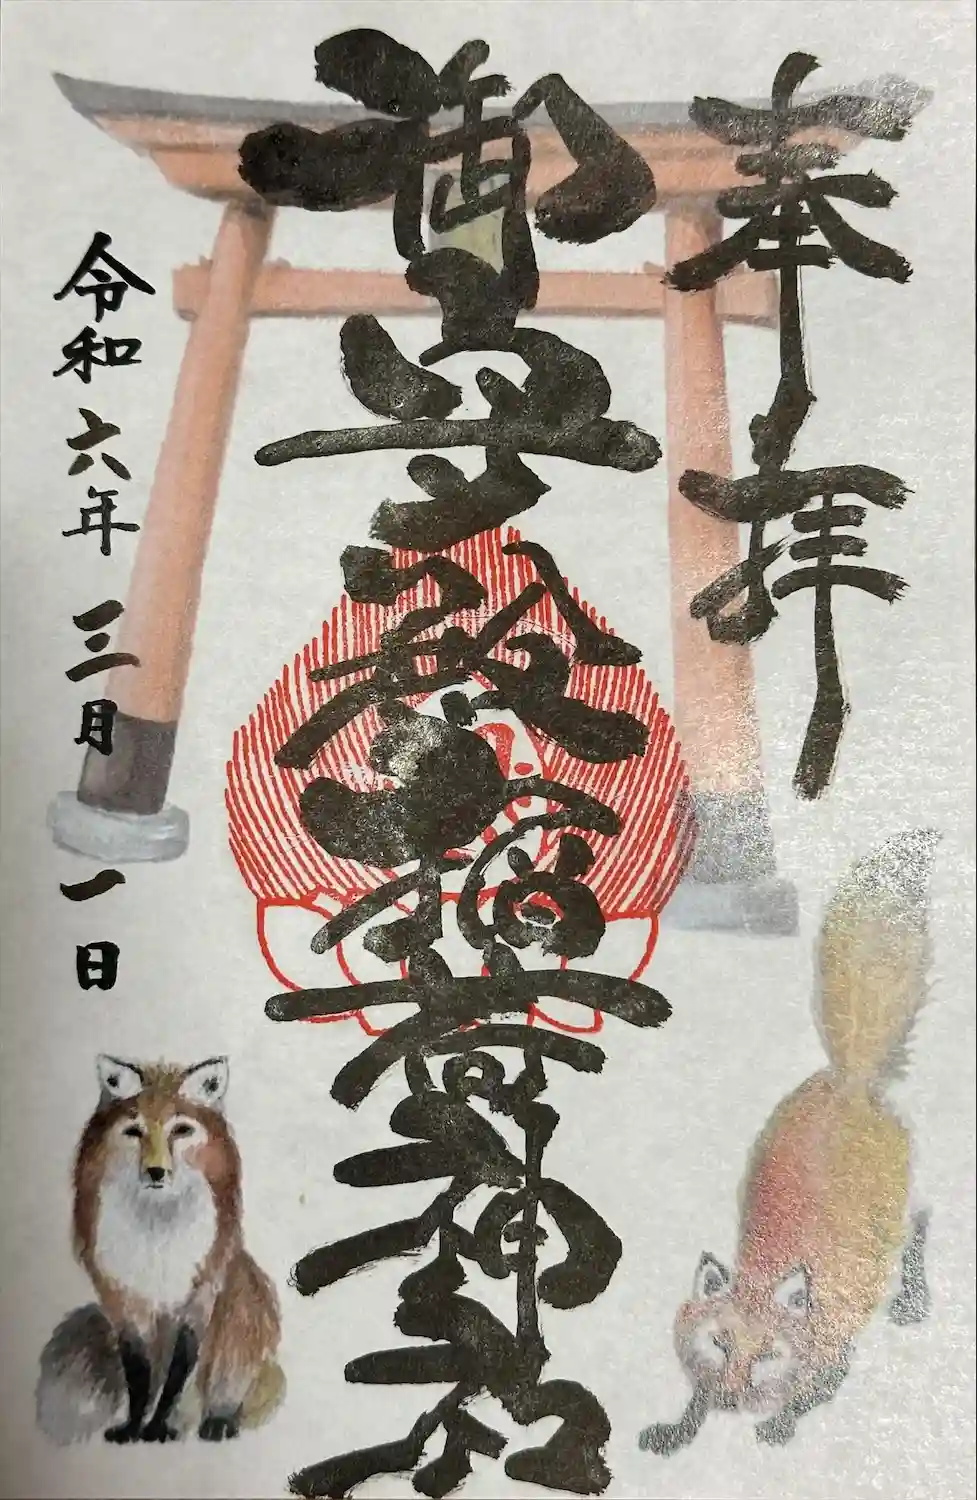 奉拝
御 稲荷神社
令和六年三月一日